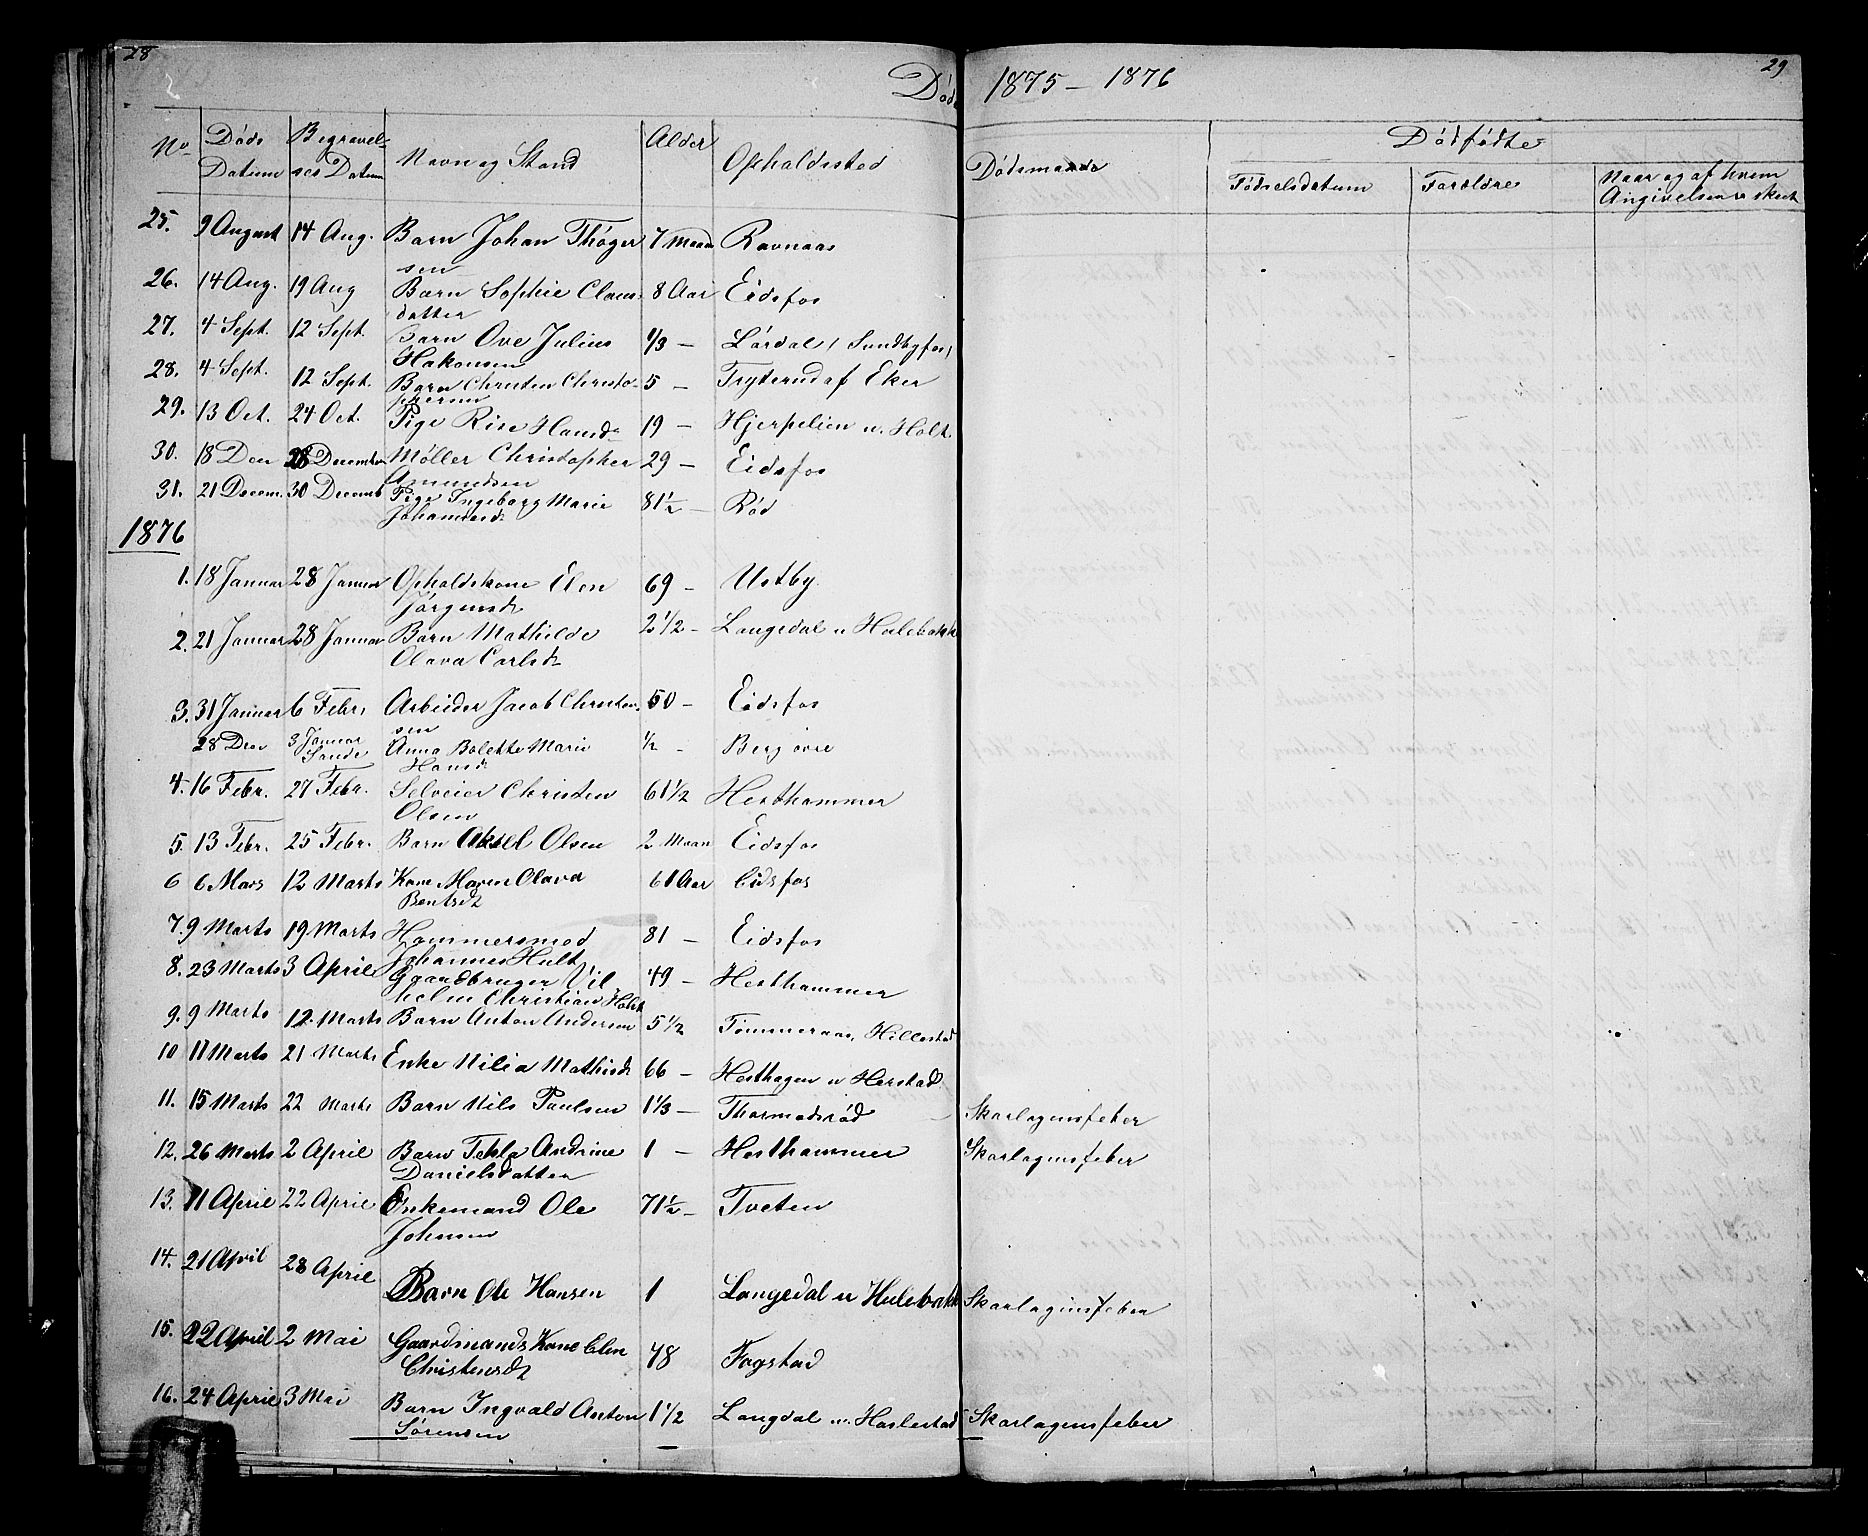 28
Døde 1875 - 1876
29
No. Døds Datum Begravel- ses Datum Navn og Stand Alder Opholdssted Dødsmaade Dødfødte
Fødselsdatum Forældre Naar og af hvem Angivelsen er skeet
25. 9 August 14 Aug. Barn Johan Thøger 7 Maan Ravnaas
sen
26. 14 Aug. 19 Aug Barn Sophie Claus 8 Aar Eidsfos
datter
27. 4 Sept. 12 Sept. Barn Ove Julius 1/3 - Lørdal (Sundbyfos)
Hakonsen
28. 4 Sept. 12 Sept. Barn Christen Christo- 5 - af Eker
phersen
29. 13 Oct. 24 Oct. Pige Hansd. 19 - Hjerpelien u. Holt
30. 18 Dec 28 December Møller Christopher 29 - Eidsfos
Amundsen
31. 21 Decem. 30 Decemb Pige Ingeborg Marie 81½ - Rød
Johannesd.
1876
1. 18 Januar 28 Januar Opholdskone Elen 69 - Ustby.
Jørgensd.
2. 21 Januar 28 Januar Barn Mathilde 2 1/2 - Langedal u Hulebakk
Olava Carlsd.
3. 31 Januar 6 Febr. Arbeider Jacob Christen 50 - Eidsfos
sen
28 Dec 3 Januar Sande Anna Bolette Marie 1/2 - Berg øvre
Hansd.
4. 16 Febr. 27 Febr. Selveier Christen 61 1/2 Hesthammer
Olsen
5. 13 Febr. 25 Febr. Barn Aksel Olsen 2 Maan Eidsfos
6 6 Mars 12 Marts Kone Maren Olava 61 Aar Eidsfos
Bentsd.
7. 9 Marts 19 Marts Hammersmed 81 - Eidsfos
Johannes Hult
8. 23 Marts 3 April Gaardbruger Vil 49 - Hesthammer
helm Christian Holst
9. 9 Marts 12. Marts Barn Anton Andersen 5 1/2 Tømmeraas, Hillestad
10 11 Marts 21 Marts Enke Nilia Mathisd. 66 - Hesthagen u Herstad
11. 15 Marts 22 Marts Barn Nils Paulsen 1 1/3 - Thormodsrød - Skarlagensfeber
12. 26 Marts 2 April Barn Tekla Andrine 1 - Hesthammer Skarlagensfeber
Danielsdatter
13. 11 April 22 April Enkemand Ole 71½ - Tveten
Johnsen
14. 21 April 28 April Barn Ole Hansen 1 Langedal u Hulebakk Skarlagensfeber
15. 22 April 2 Mai Gaardmands Kone Elen 48 Fogstad
Christensd.
16. 24 April 3 Mai Barn Ingvald Anton 1 1/2 Langdal u. Haslestad Skarlagensfeber
Sørensen